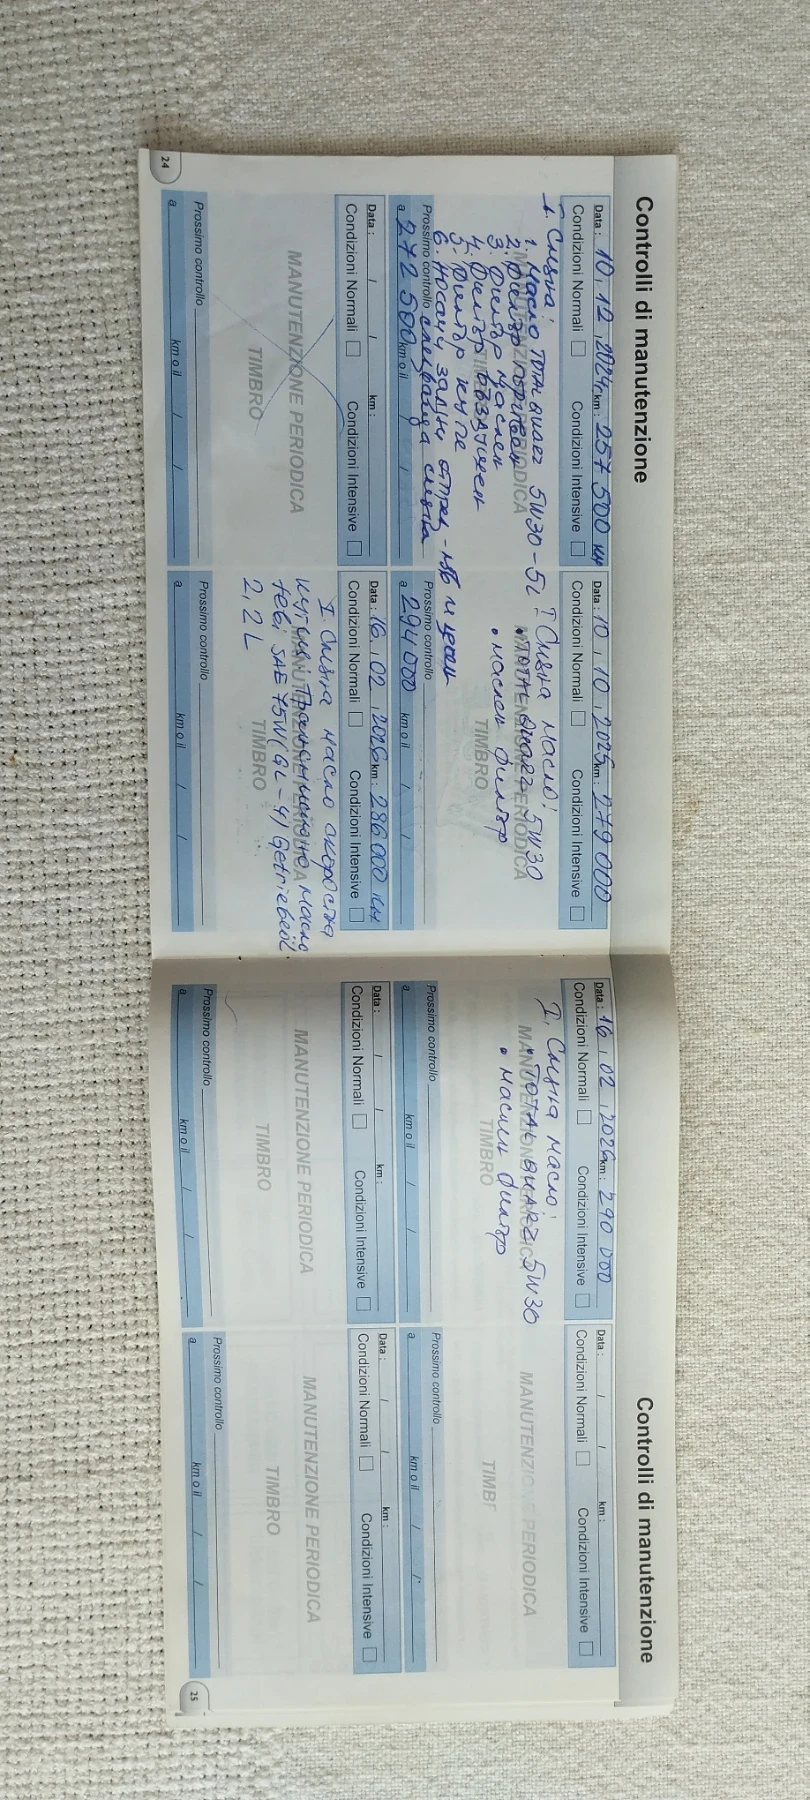 Controlli di manutenzione
Data : 10 / 12 / 2024г km : 257 500 км
Condizioni Normali Condizioni Intensive
1. Смяна:
1. Масло тотал 5W30 - 5L
2. Филтър
3. Филтър маслен
4. Филтър въздушен
5. Филтър купе
6. Носачи задни
MANUTENZIONE PERIODICA
TIMBRO
Prossimo controllo
a 272 500 km o il / /
Data : 10 / 10 / 2025 km : 279 000
Condizioni Normali Condizioni Intensive
I Смяна масло:
• тотал 5W30
• маслен филтър
MANUTENZIONE PERIODICA
TIMBRO
Prossimo controllo
a 294000 km o il / /
Data : / / km :
Condizioni Normali Condizioni Intensive
MANUTENZIONE PERIODICA
TIMBRO
Prossimo controllo
a km o il / /
Data : 16 / 02 / 2026 km : 286 000 км
Condizioni Normali Condizioni Intensive
I Смяна масло скоростна
кутия: Трансмисионно масло
SAE 75W (GL-4) Getriebeöl
2,2 L
MANUTENZIONE PERIODICA
TIMBRO
Prossimo controllo
a km o il / /
24
Controlli di manutenzione
Data : 16 / 02 / 2026 km : 290 000
Condizioni Normali Condizioni Intensive
I. Смяна масло:
• тотал 5W30
• маслен филтър
MANUTENZIONE PERIODICA
TIMBRO
Prossimo controllo
a km o il / /
Data : / / km :
Condizioni Normali Condizioni Intensive
MANUTENZIONE PERIODICA
TIMBR
Prossimo controllo
a km o il / /
Data : / / km :
Condizioni Normali Condizioni Intensive
MANUTENZIONE PERIODICA
TIMBRO
Prossimo controllo
a km o il / /
Data : / / km :
Condizioni Normali Condizioni Intensive
MANUTENZIONE PERIODICA
TIMBRO
Prossimo controllo
a km o il / /
25